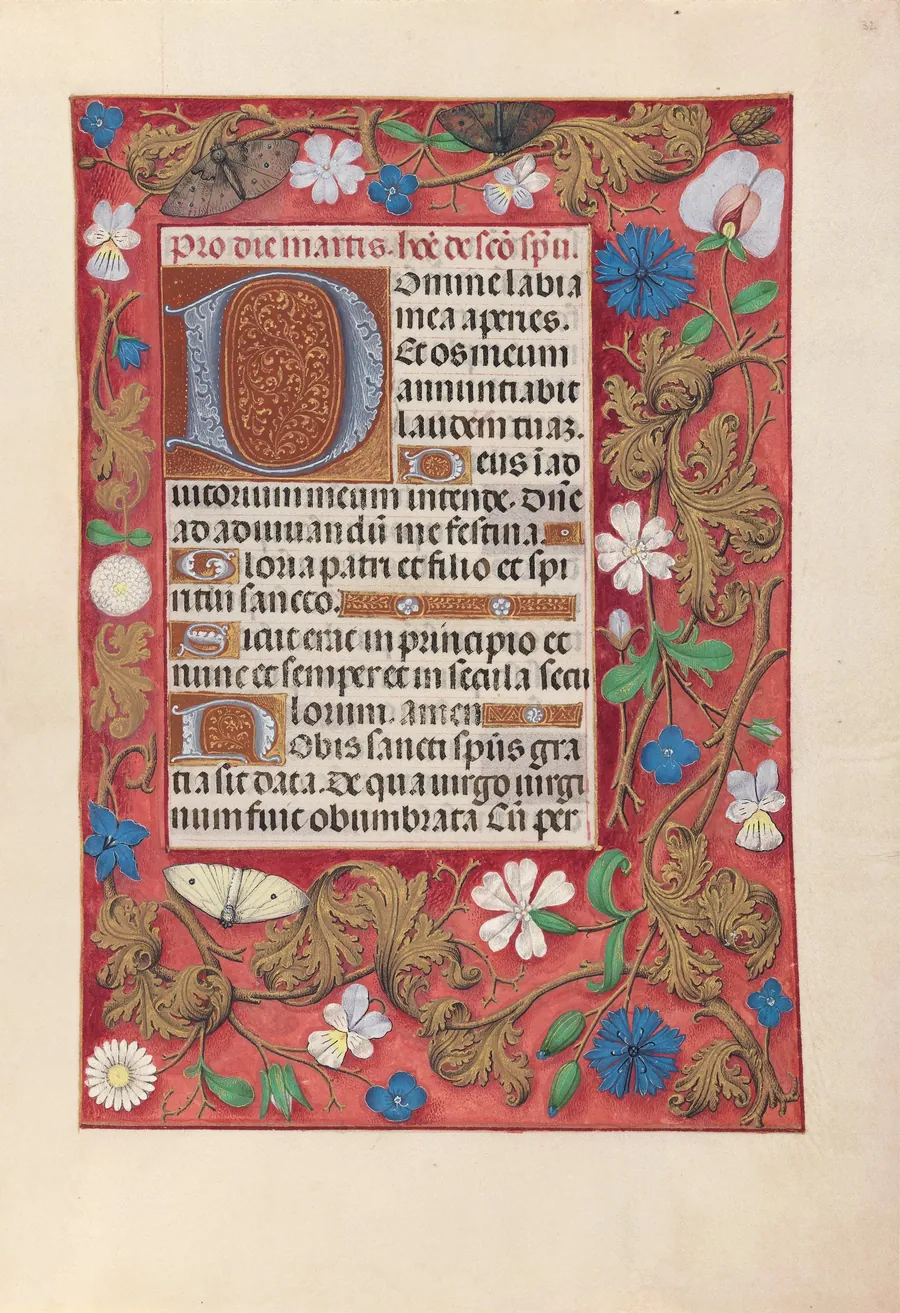 32
Pro die martis. hoẽ de scõ spũ.
Domine labia
mea aperies.
Et os meum
annuntiabit
laudem tuaz.
Deus ĩ ad
iutorium meum intende. Dñe
ad adiuuandũ me festina.
Gloria patri et filio et spi
ritui sancto.
Sicut erat in principio et
nunc et semper et in secula secu
lorum. Amen
Nobis sancti spũs gra
tia sit data. De qua uirgo uirgi
num fuit obumbrata Cũ per